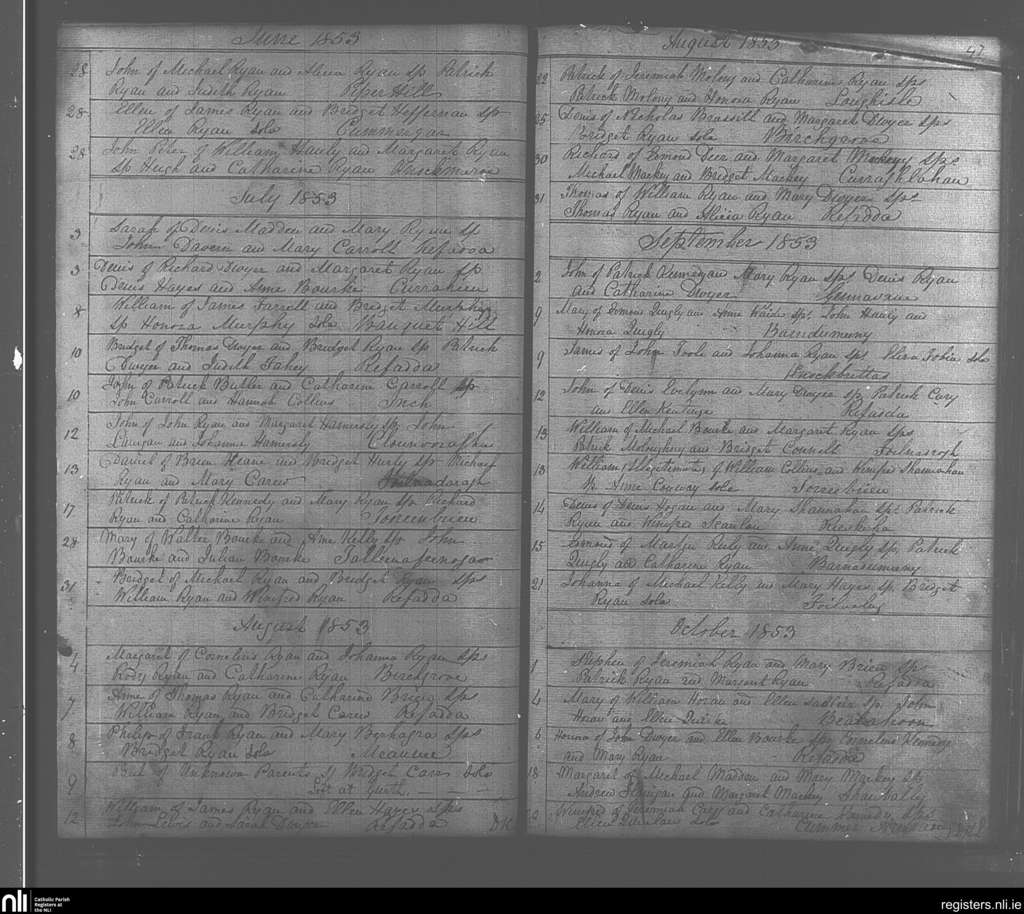 June 1853
28 John of Michael Ryan and Alicia Ryan sps Patrick
Ryan and Judith Ryan Piper Hill
28 Ellen of James Ryan and Bridget Heffernan sp
Ellen Ryan sola Cummingar
28 John of William Hauly and Margaret Ryan
sp Hugh and Catharine Ryan Knockmeroe
July 1853
3 Sarah of Denis Madden and Mary Ryan sp
John Davern and Mary Carroll Refadda
3 Denis of Richard Dwyer and Margaret Ryan sp
Denis Hayes and Anne Bourke Curraheen
8 William of James Farrell and Bridget Murphy
sp Honora Murphy sola Banquet Hill
10 Bridget of Thomas Dwyer and Bridget Ryan sp Patrick
Dwyer and Judith Fahey Refadda
10 John of Patrick Butler and Catharine Carroll sp
John Carroll and Hannah Collins Inch
12 John of John Ryan and Margaret Hammersly sp John
Lanigan and Johanna Hammersly
13 Daniel of Brien Heane and Bridget Hurly sp Michael
Ryan and Mary Carew Foilnadaragh
17 Patrick of Patrick Kennedy and Mary Ryan sp Richard
Ryan and Catharine Ryan Toneenbrien
28 Mary of Walter Bourke and Anne Kelly sp John
Bourke and Julian Bourke
31 Bridget of Michael Ryan and Bridget Ryan sps
William Ryan and Winifred Ryan Refadda
August 1853
4 Margaret of Cornelius Ryan and Johanna Ryan sps
Rody Ryan and Catharine Ryan Birchgrove
7 Anne of Thomas Ryan and Catharine Brien sps
William Ryan and Bridget Carew Refadda
8 Philip of Frank Ryan and Mary sps
Bridget Ryan sola
9 Brid of Unknown Parents sp Bridget Carew sola
12 William of James Ryan and Ellen Hayes sps
John Lewis and Sarah Dwyer Refadda
August 1853 47
22 Patrick of Jeremiah Molony and Catharine Ryan sps
Patrick Molony and Honora Ryan Loughisle
25 Denis of Nicholas Brassill and Margaret Dwyer sps
Bridget Ryan sola Birchgrove
30 Richard of Edmond Deer and Margaret Mackey sps
Michael Mackey and Bridget Mackey Curraghclahan
31 Thomas of William Ryan and Mary Dwyer sps
Thomas Ryan and Alicia Ryan Refadda
September 1853
2 John of Patrick Dunnigan Mary Ryan sps Denis Ryan
and Catharine Dwyer Glennavaire
9 Mary of Edmond Quigly and Anne Wade sps John Hauly and
Honora Quigly Barnduminy
9 James of John Toole and Johanna Ryan sps Eliza Tobin sola
Knockbrittas
12 John of Denis Loclynn and Mary Dwyer sp Patrick Cary
and Ellen Refadda
13 William of Michael Bourke and Margaret Ryan sps
Patrick Moloughny and Bridget Connell
13 William (Illegitimate) of William Collins and Winifred Shannahan
sp Anne Conway sola Toneenbrien
14 Denis of Denis Hogan and Mary Shannahan sps Patrick
Ryan and Winifred Scanlan
15 Edmond of Mathew Ruly and Anne Quigly sp Patrick
Quigly and Catharine Ryan Barnaduminy
21 Johanna of Michael Kelly and Mary Hayes sp Bridget
Ryan sola
October 1853
1 Stephen of Jeremiah Ryan and Mary Brien sp
Patrick Ryan and Margaret Ryan Refadda
4 Mary of William Horan and Ellen Sadleir sp John
Horan and Ellen
6 Honora of John Dwyer and Ellen Bourke sps Cornelius Kennedy
and Mary Ryan Refadda
18 Margaret of Michael Madden and Mary Mackey sp
Andrew Lanigan and Margaret Mackey Shanbally
Winifred of Jeremiah Cary and Catharine sps
Ellen Quinlan sola
nli
Catholic Parish
Registers at
the NLI
registers.nli.ie